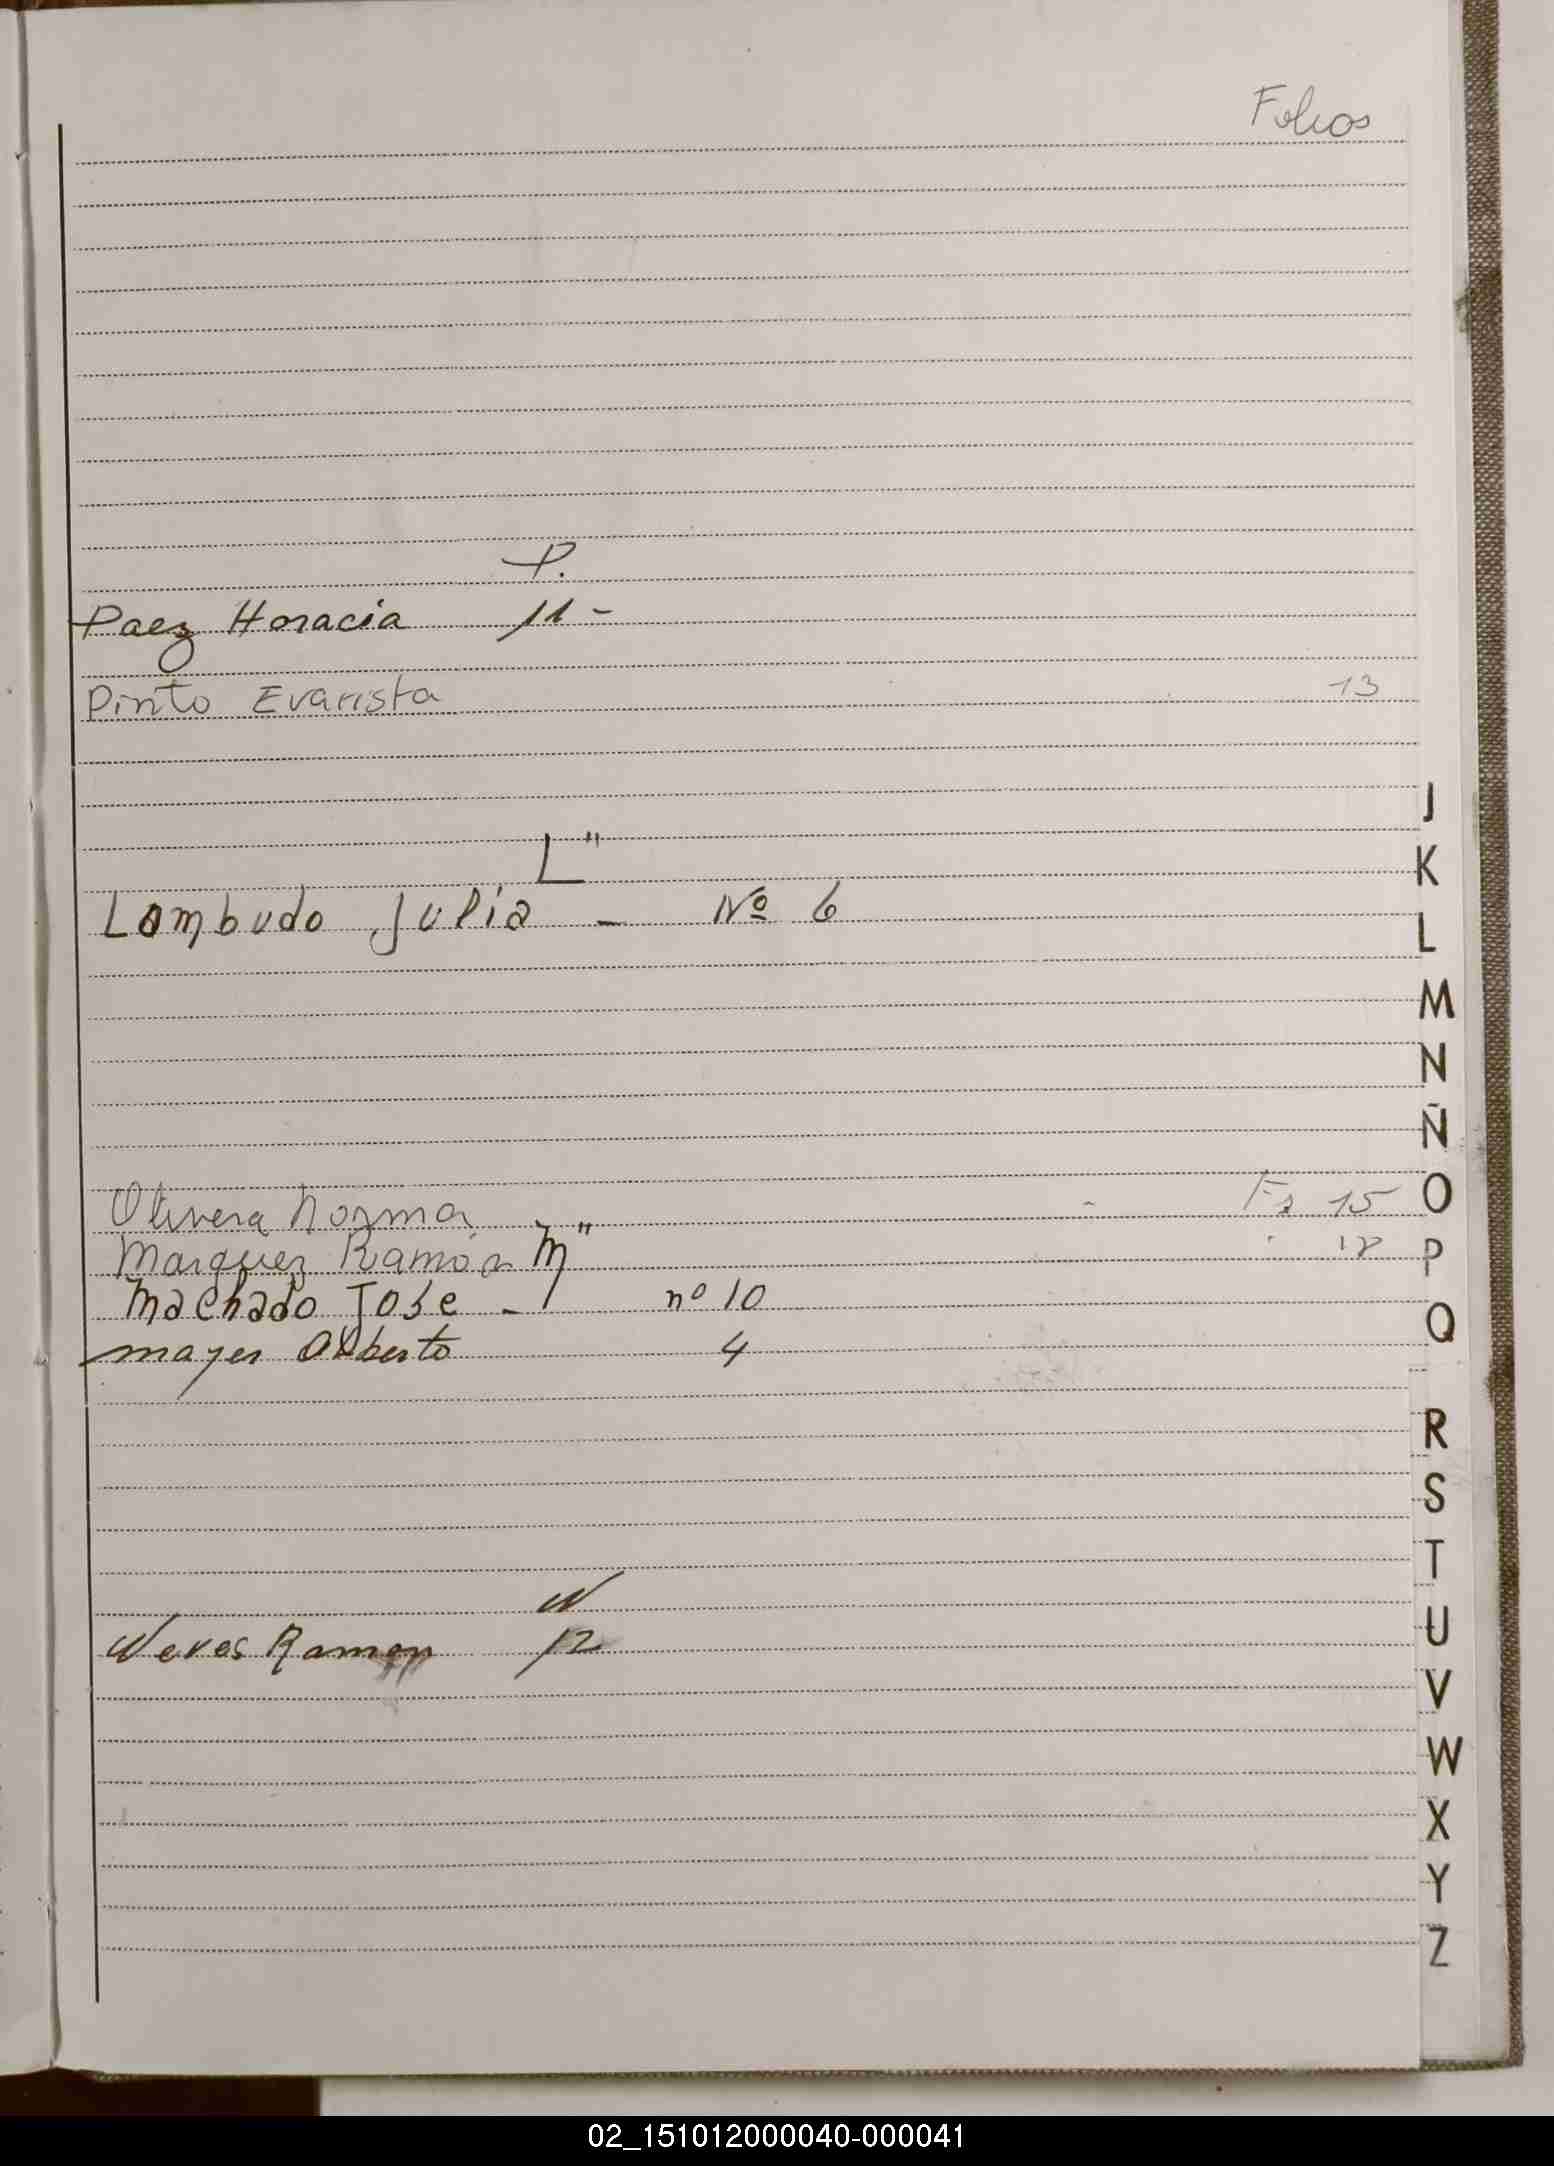 Folios
P.
Paez Horacia 11 -
Pinto Evarista 13
L"
Lombudo Julia - Nº 6
Olivera Norma - Fs 15
Marquez Ramón " 12
M"
Machado Jose - nº 10
mayer Alberto 4
N
Neves Ramon 12
J
K
L
M
N
Ñ
O
P
Q
R
S
T
U
V
W
X
Y
Z
02_151012000040-000041